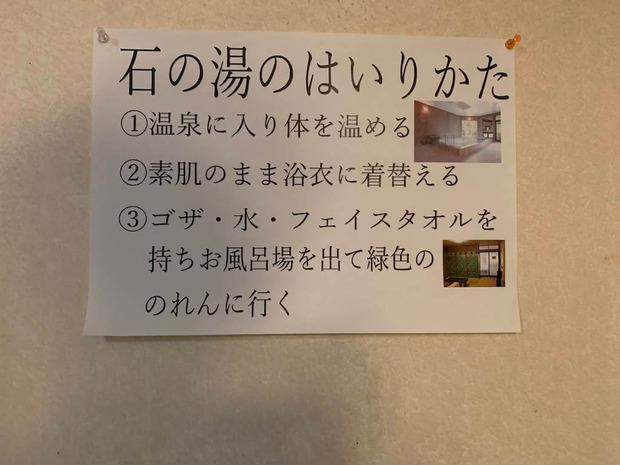 石の湯のはいりかた
①温泉に入り体を温める
②素肌のまま浴衣に着替える
③ゴザ・水・フェイスタオルを
持ちお風呂場を出て緑色の
のれんに行く